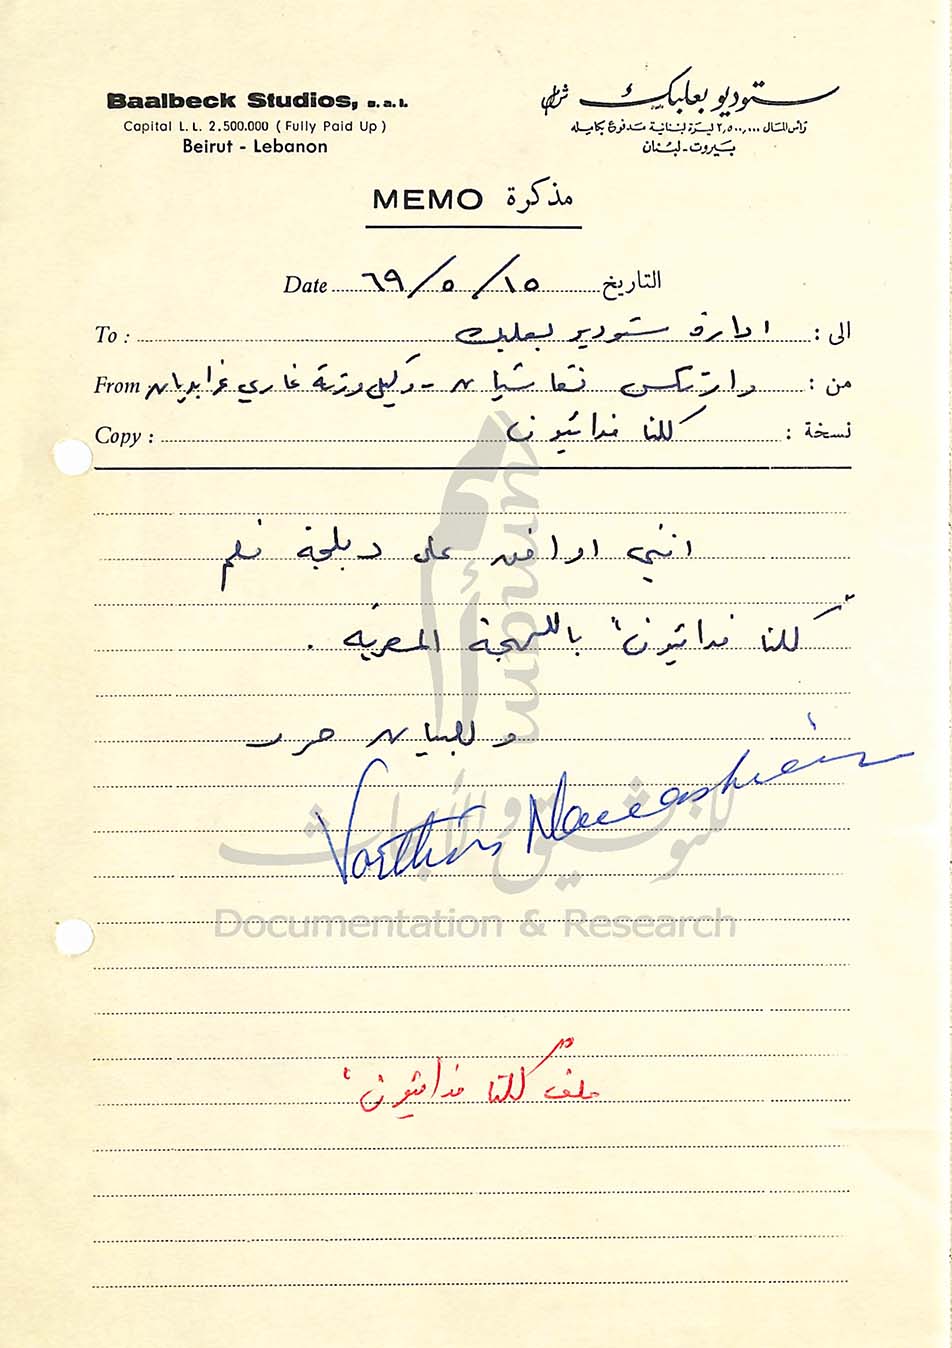 Baalbeck Studios, s.a.l.
Capital L.L. 2.500.000 ( Fully Paid Up )
Beirut - Lebanon
ستوديو بعلبك ش.م.ل
رأس المال ٢,٥٠٠,٠٠٠ ليرة لبنانية مدفوع بكامله
بيروت - لبنان
MEMO مذكرة
Date ٦٩/٥/١٥ التاريخ
To : ادارة ستوديو بعلبك الى :
From وارتكس نقاشيان - وكيل ورثة غاري غرابديان من :
Copy : كلنا فدائيون نسخة :
انني اوافق على دبلجة فلم
"كلنا فدائيون" باللهجة المصرية .
وللبيان حرر
Vartkes Nacashian
ملف "كلنا فدائيون"
umam
للتوثيق والأبحاث
Documentation & Research